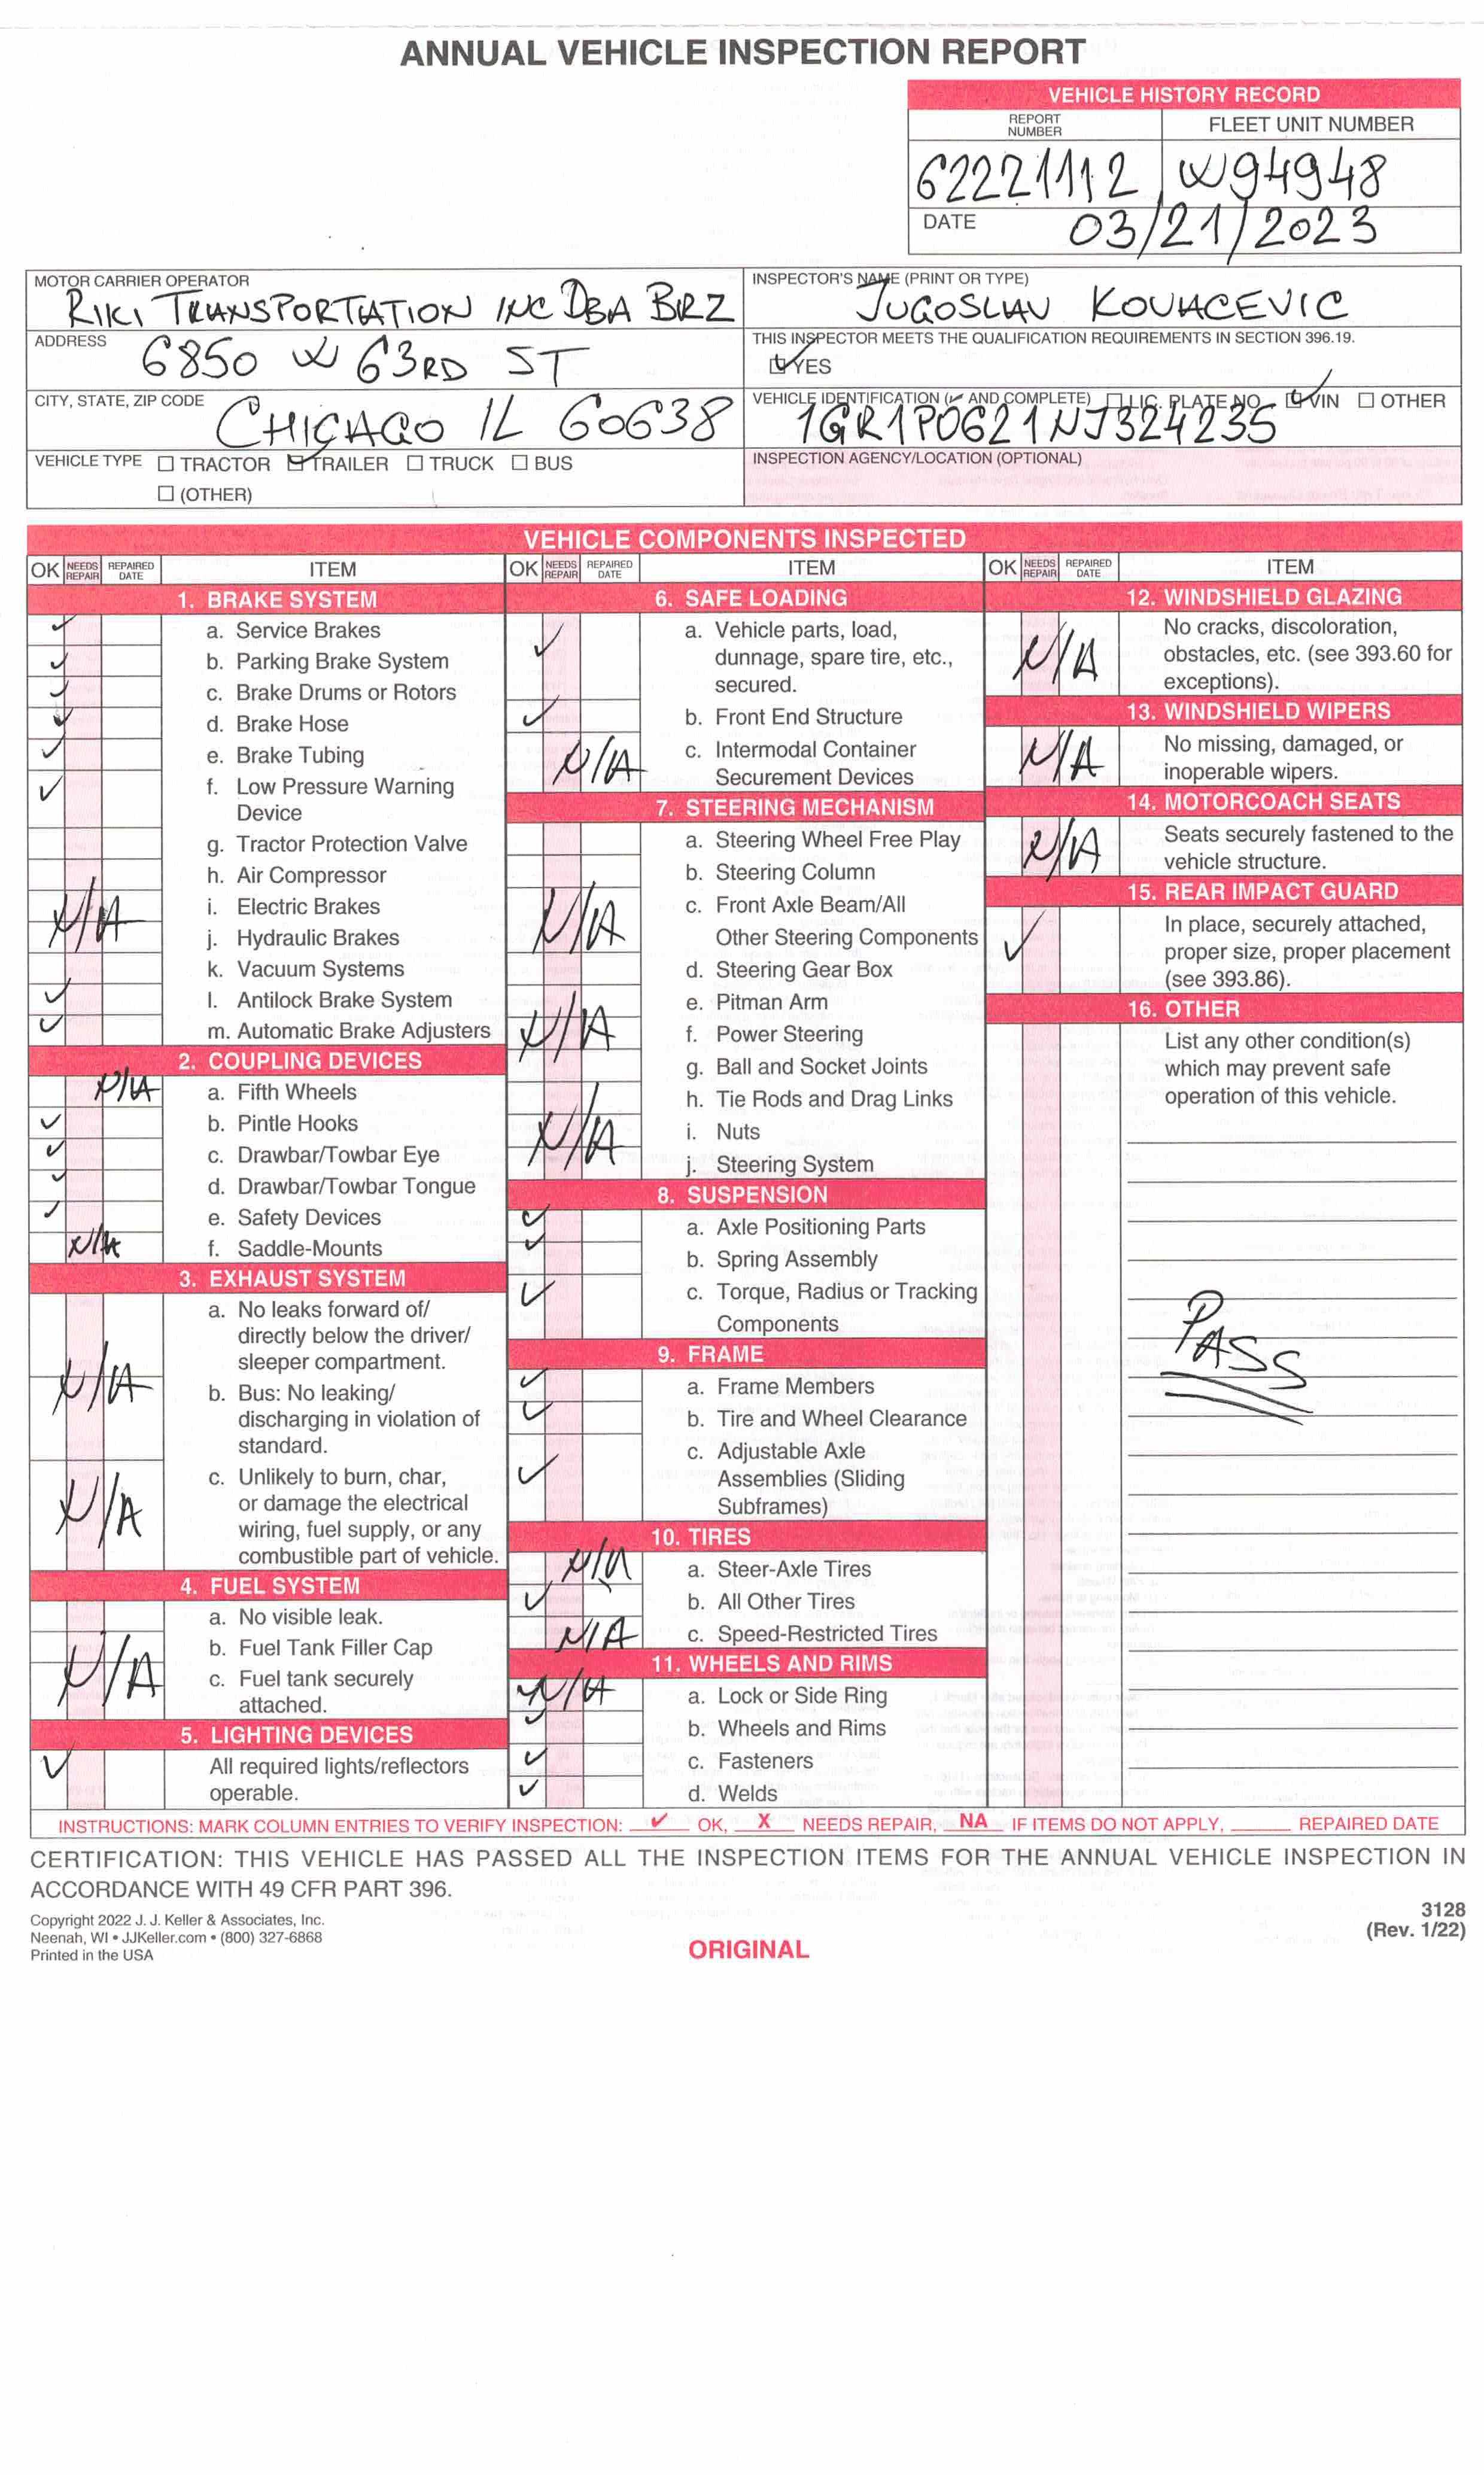 ANNUAL VEHICLE INSPECTION REPORT
VEHICLE HISTORY RECORD
REPORT NUMBER
FLEET UNIT NUMBER
62221112
W94948
DATE 03/21/2023
MOTOR CARRIER OPERATOR
RIKI TRANSPORTATION INC DBA BRZ
INSPECTOR'S NAME (PRINT OR TYPE)
JUGOSLAV KOVACEVIC
ADDRESS
6850 W 63RD ST
THIS INSPECTOR MEETS THE QUALIFICATION REQUIREMENTS IN SECTION 396.19.
☑ YES
CITY, STATE, ZIP CODE
CHICAGO IL 60638
VEHICLE IDENTIFICATION (✓ AND COMPLETE) ☐ LIC. PLATE NO. ☑ VIN ☐ OTHER
1GR1P0621NJ324235
VEHICLE TYPE ☐ TRACTOR ☑ TRAILER ☐ TRUCK ☐ BUS
☐ (OTHER)
INSPECTION AGENCY/LOCATION (OPTIONAL)
VEHICLE COMPONENTS INSPECTED
OK NEEDS REPAIR REPAIRED DATE ITEM
1. BRAKE SYSTEM
✓ a. Service Brakes
✓ b. Parking Brake System
✓ c. Brake Drums or Rotors
✓ d. Brake Hose
✓ e. Brake Tubing
✓ f. Low Pressure Warning
Device
g. Tractor Protection Valve
h. Air Compressor
N/A i. Electric Brakes
j. Hydraulic Brakes
k. Vacuum Systems
✓ l. Antilock Brake System
✓ m. Automatic Brake Adjusters
2. COUPLING DEVICES
N/A a. Fifth Wheels
✓ b. Pintle Hooks
✓ c. Drawbar/Towbar Eye
✓ d. Drawbar/Towbar Tongue
✓ e. Safety Devices
N/A f. Saddle-Mounts
3. EXHAUST SYSTEM
a. No leaks forward of/
directly below the driver/
sleeper compartment.
N/A b. Bus: No leaking/
discharging in violation of
standard.
N/A c. Unlikely to burn, char,
or damage the electrical
wiring, fuel supply, or any
combustible part of vehicle.
4. FUEL SYSTEM
a. No visible leak.
N/A b. Fuel Tank Filler Cap
c. Fuel tank securely
attached.
5. LIGHTING DEVICES
✓ All required lights/reflectors
operable.
OK NEEDS REPAIR REPAIRED DATE ITEM
6. SAFE LOADING
✓ a. Vehicle parts, load,
dunnage, spare tire, etc.,
secured.
✓ b. Front End Structure
N/A c. Intermodal Container
Securement Devices
7. STEERING MECHANISM
a. Steering Wheel Free Play
b. Steering Column
N/A c. Front Axle Beam/All
Other Steering Components
d. Steering Gear Box
e. Pitman Arm
N/A f. Power Steering
g. Ball and Socket Joints
h. Tie Rods and Drag Links
N/A i. Nuts
j. Steering System
8. SUSPENSION
✓ a. Axle Positioning Parts
✓ b. Spring Assembly
✓ c. Torque, Radius or Tracking
Components
9. FRAME
✓ a. Frame Members
✓ b. Tire and Wheel Clearance
✓ c. Adjustable Axle
Assemblies (Sliding
Subframes)
10. TIRES
N/A a. Steer-Axle Tires
✓ b. All Other Tires
N/A c. Speed-Restricted Tires
11. WHEELS AND RIMS
N/A a. Lock or Side Ring
✓ b. Wheels and Rims
✓ c. Fasteners
✓ d. Welds
OK NEEDS REPAIR REPAIRED DATE ITEM
12. WINDSHIELD GLAZING
N/A No cracks, discoloration,
obstacles, etc. (see 393.60 for
exceptions).
13. WINDSHIELD WIPERS
N/A No missing, damaged, or
inoperable wipers.
14. MOTORCOACH SEATS
N/A Seats securely fastened to the
vehicle structure.
15. REAR IMPACT GUARD
✓ In place, securely attached,
proper size, proper placement
(see 393.86).
16. OTHER
List any other condition(s)
which may prevent safe
operation of this vehicle.
PASS
INSTRUCTIONS: MARK COLUMN ENTRIES TO VERIFY INSPECTION: ✓ OK, X NEEDS REPAIR, NA IF ITEMS DO NOT APPLY, ______ REPAIRED DATE
CERTIFICATION: THIS VEHICLE HAS PASSED ALL THE INSPECTION ITEMS FOR THE ANNUAL VEHICLE INSPECTION IN
ACCORDANCE WITH 49 CFR PART 396.
Copyright 2022 J. J. Keller & Associates, Inc.
Neenah, WI • JJKeller.com • (800) 327-6868
Printed in the USA
ORIGINAL
3128
(Rev. 1/22)